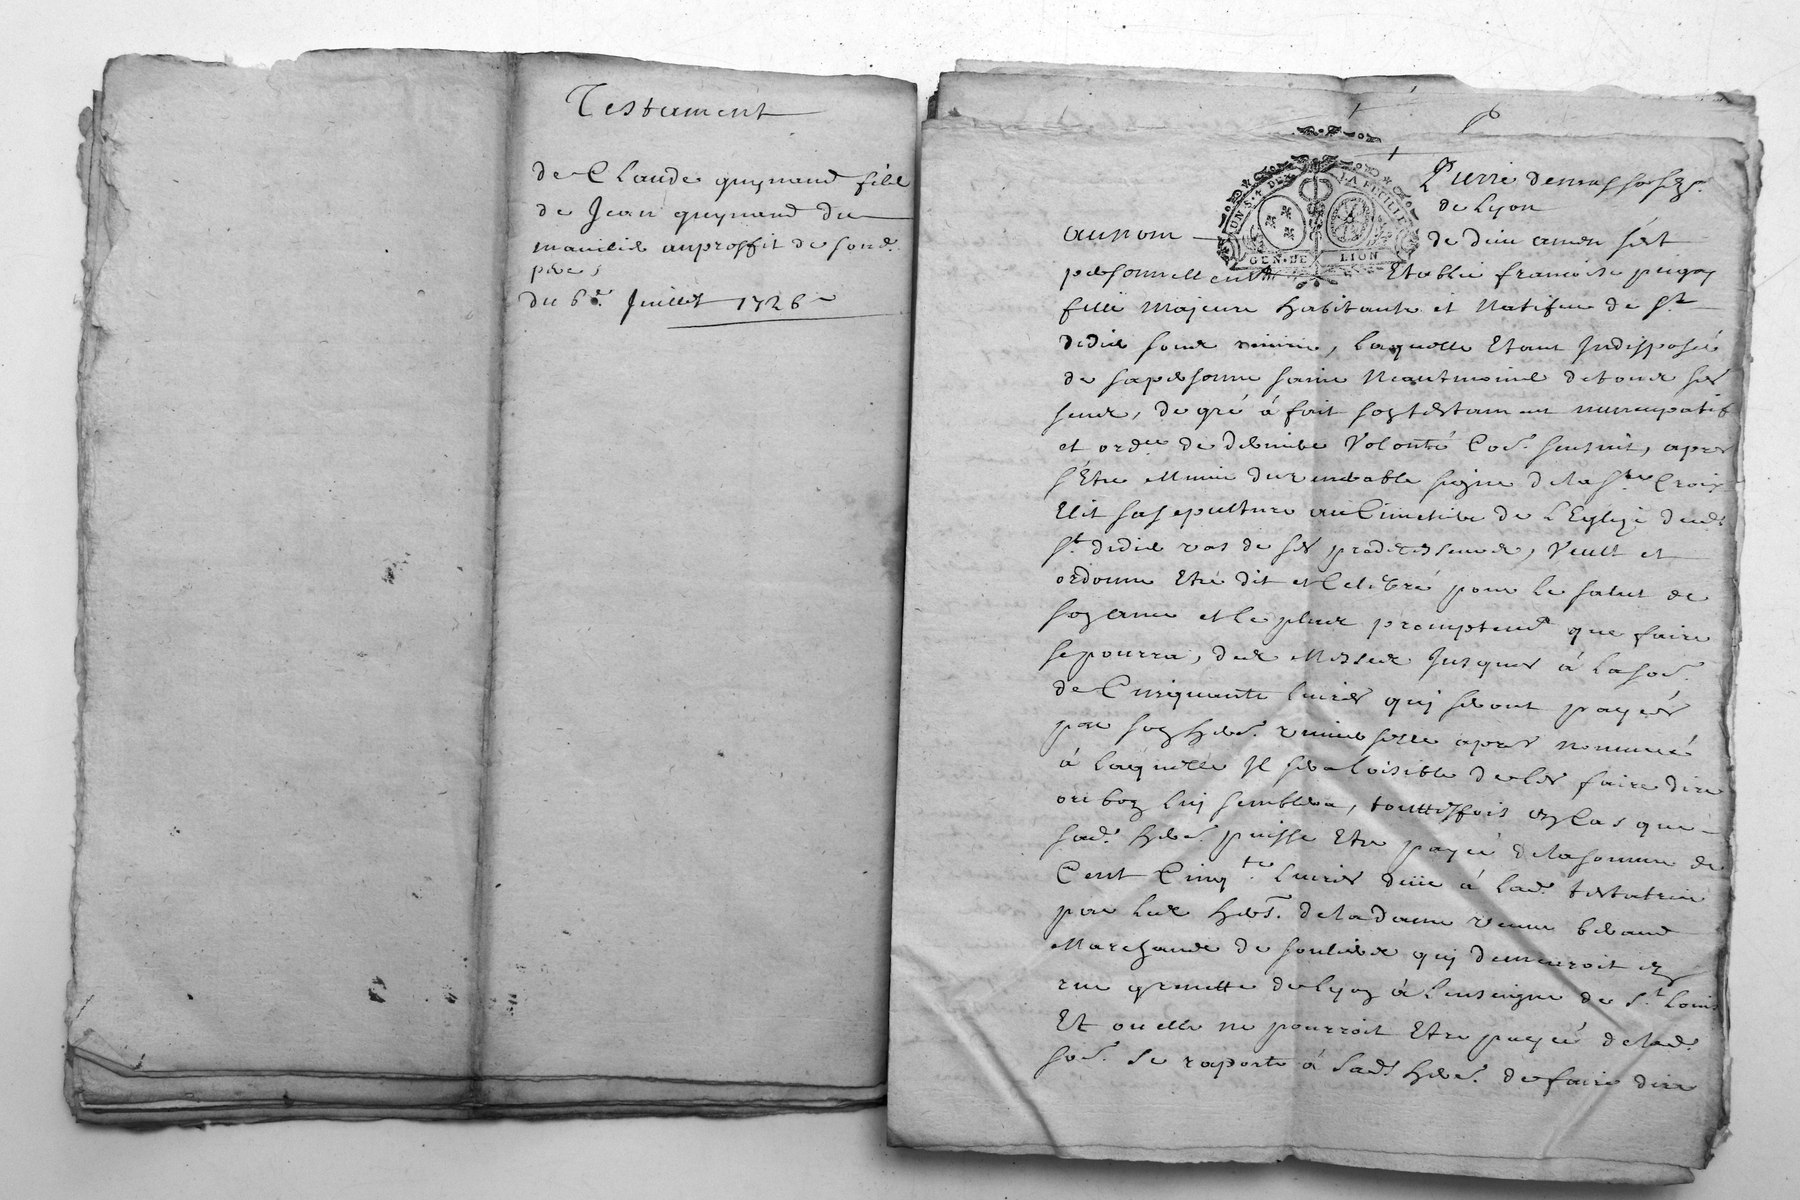 Testament
de Claude guynand fils
de Jean guynand du
auproffit de sond.
pere
du 6e. Juillet 1726
UN S. 4 DEN. LA FEUILLE
GEN. DE LION
Pierre
de Lyon
au nom de dieu amen soit
personnellemt Etablie francoise
fille Majeure habitante et Natifue de St
didier sous riuirie, laquelle Etant Indisposée
de sa personne saine Neantmoins de tous ses
sens, de gré à fait son testament nuncupatif
et ordce de derniere Volonté Coe. sensuit, apres
s'Etre Munie du venerable signe de la Ste Croix
Elit sa sepulture au Cimetiere de L'Eglize dud.
St. didier vas de ses predecesseurs, Veult et
ordonne Etre dit et Celebré pour le salut de
son ame et le plus promptemt que faire
se pourra, des Messes Jusques à la soe.
de Cinquante liures quj seront payées
par son here. vniuerselle apres nommée
à laquelle Jl sera loisible de les faire dire
ou bon luj semblera, touttesfois en Cas que
sad. here. puisse Etre payée de la somme de
Cent Cinqte. liures düe à lad. testatrice
par les hers. de la dame veuue beraud
Marchande de souliers quj demeuroit en
rue grenette de lyon à l'enseigne de St. Louis
Et ou elle ne pourroit Etre payée de lad.
soe. se raporte à sad. here. de faire dire